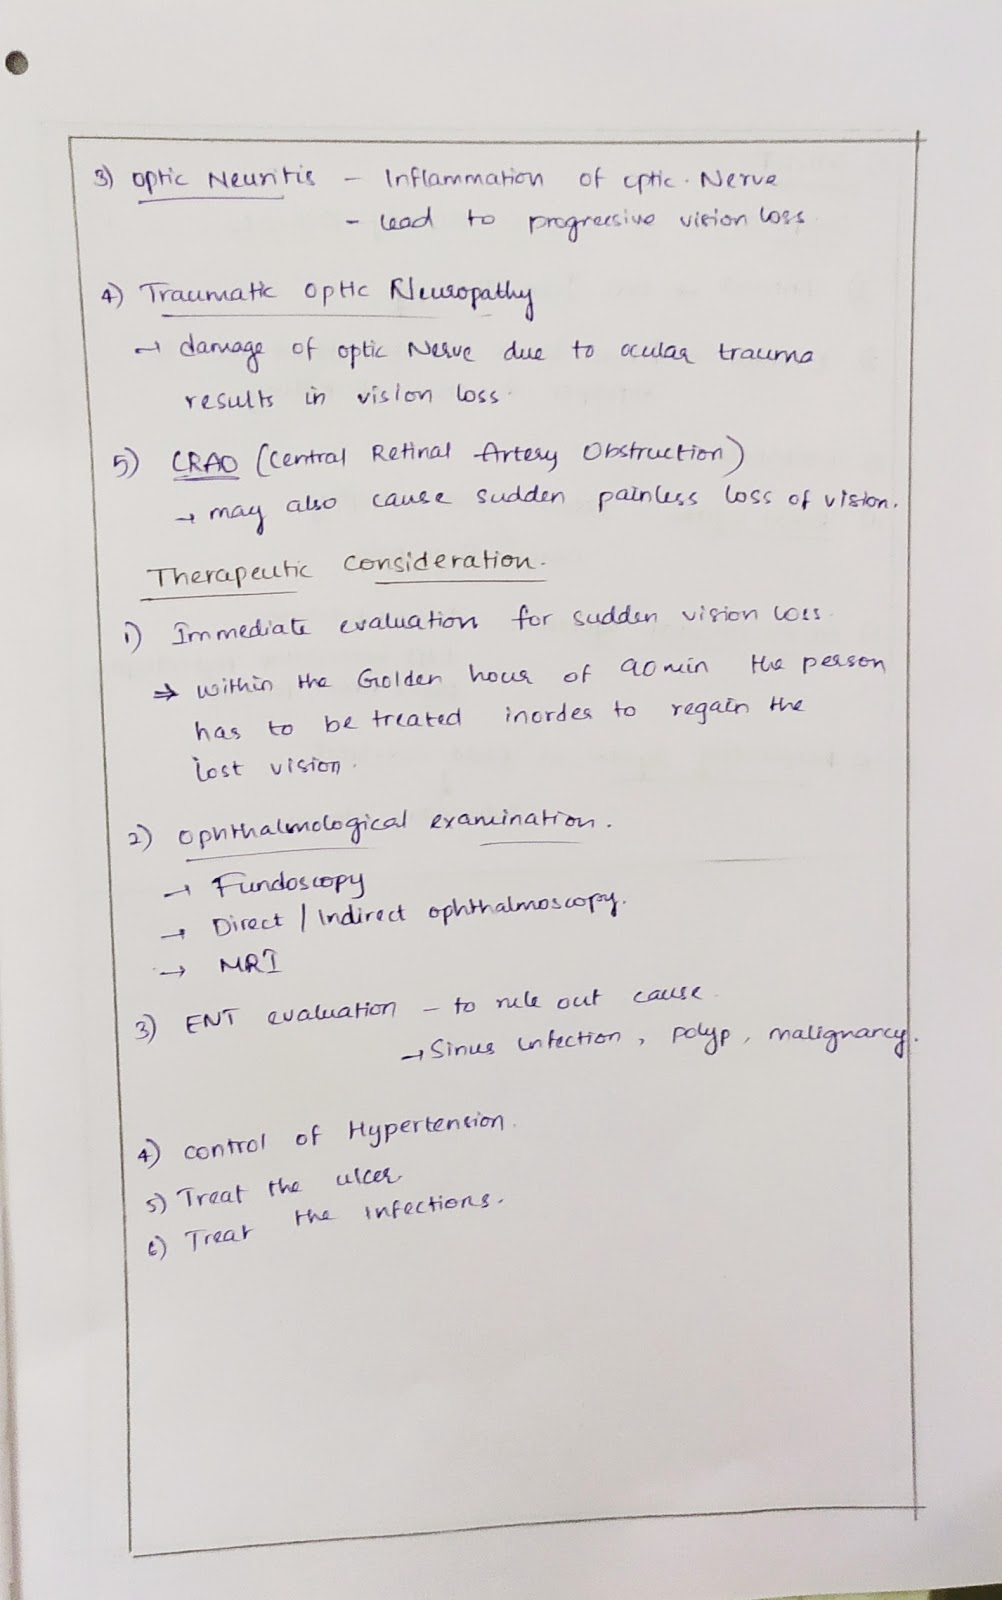 3) Optic Neuritis - Inflammation of optic Nerve
- lead to progressive vision loss.
4) Traumatic Optic Neuropathy
→ damage of optic Nerve due to ocular trauma
results in vision loss.
5) CRAO (Central Retinal Artery Obstruction)
→ may also cause sudden painless loss of vision.
Therapeutic Consideration.
1) Immediate evaluation for sudden vision loss.
⇒ within the Golden hour of 90 min the person
has to be treated inorder to regain the
lost vision.
2) Ophthalmological examination.
→ Fundoscopy
→ Direct / Indirect ophthalmoscopy.
→ MRI
3) ENT evaluation - to rule out cause.
→ Sinus infection, polyp, malignancy.
4) control of Hypertension.
5) Treat the ulcer.
6) Treat the infections.